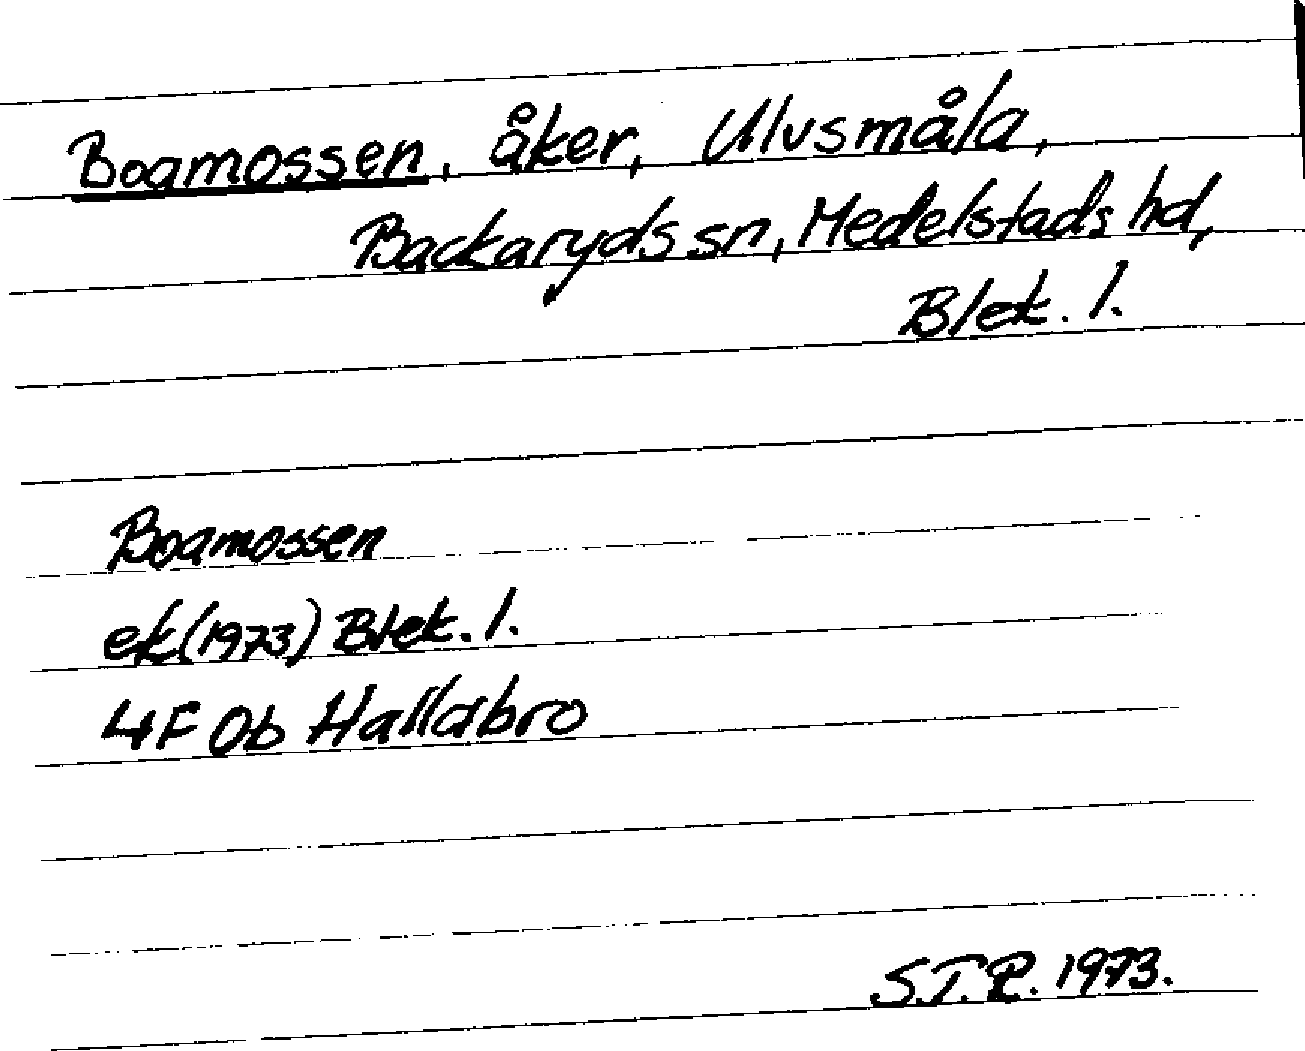 Boamossen, åker, Ulvsmåla,
Backaryds sn, Medelstads hd,
Blek. l.
Boamossen
ek (1973) Blek. l.
4F 0b Hallabro
S.T.R. 1973.